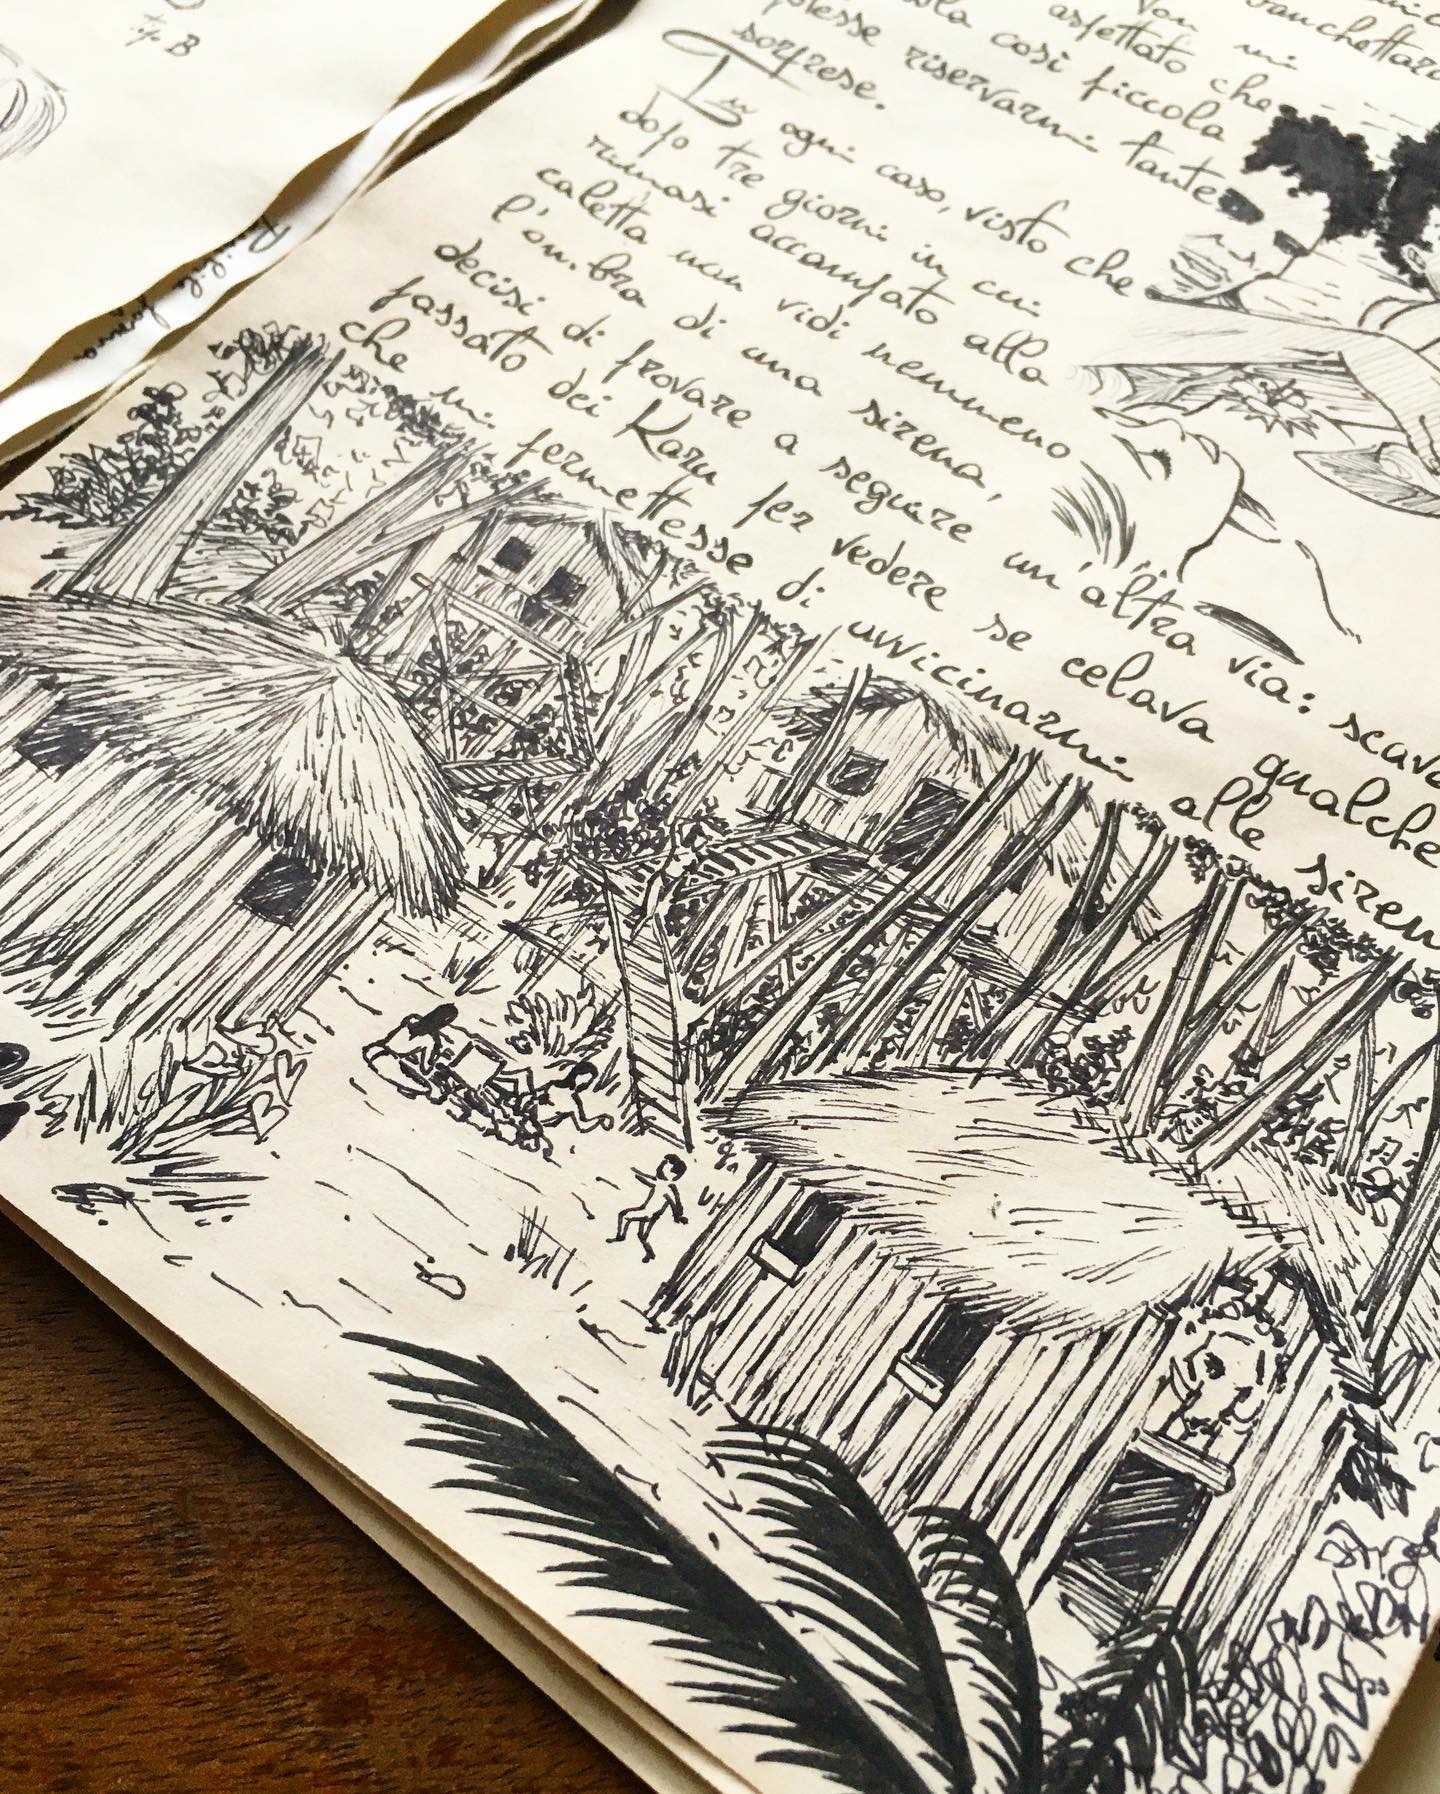 Non mi
aspettato che
isola così piccola
potesse riservarmi tante
sorprese.
In ogni caso, visto che
dopo tre giorni in cui
rimasi accampato alla
caletta non vidi nemmeno
l'ombra di una sirena,
decisi di provare a seguire un'altra via: scava
passato dei Karu per vedere se celava qualche
che mi permettesse di avvicinarmi alle siren
B